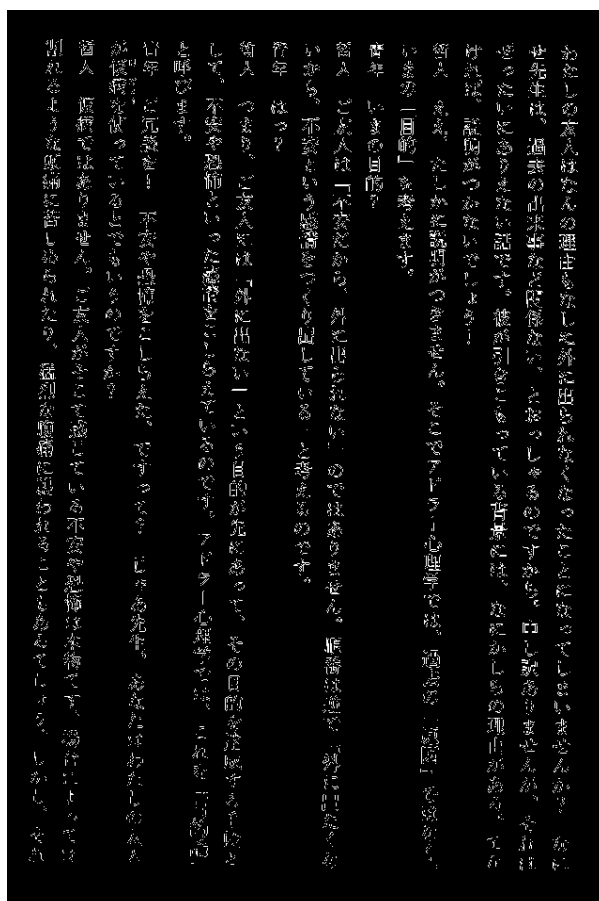 わたしの友人はなんの理由もなしに外に出られなくなったことになってしまいませんか? なに
せ先生は、過去の出来事など関係ない、とおっしゃるのですから。申し訳ありませんが、それは
ぜったいにありえない話です。彼が引きこもっている背景には、なにかしらの理由がある。でな
ければ、説明がつかないでしょう!
哲人 ええ、たしかに説明がつきません。そこでアドラー心理学では、過去の「原因」ではなく、
いまの「目的」を考えます。
青年 いまの目的?
哲人 ご友人は「不安だから、外に出られない」のではありません。順番は逆で「外に出たくな
いから、不安という感情をつくり出している」と考えるのです。
青年 はっ?
哲人 つまり、ご友人には「外に出ない」という目的が先にあって、その目的を達成する手段と
して、不安や恐怖といった感情をこしらえているのです。アドラー心理学では、これを「目的論」
と呼びます。
青年 ご冗談を! 不安や恐怖をこしらえた、ですって? じゃあ先生、あなたはわたしの友人
が仮病を使っているとでもいうのですか?
哲人 仮病ではありません。ご友人がそこで感じている不安や恐怖は本物です。場合によっては
割れるような頭痛に苦しめられたり、猛烈な腹痛に襲われることもあるでしょう。しかし、それ